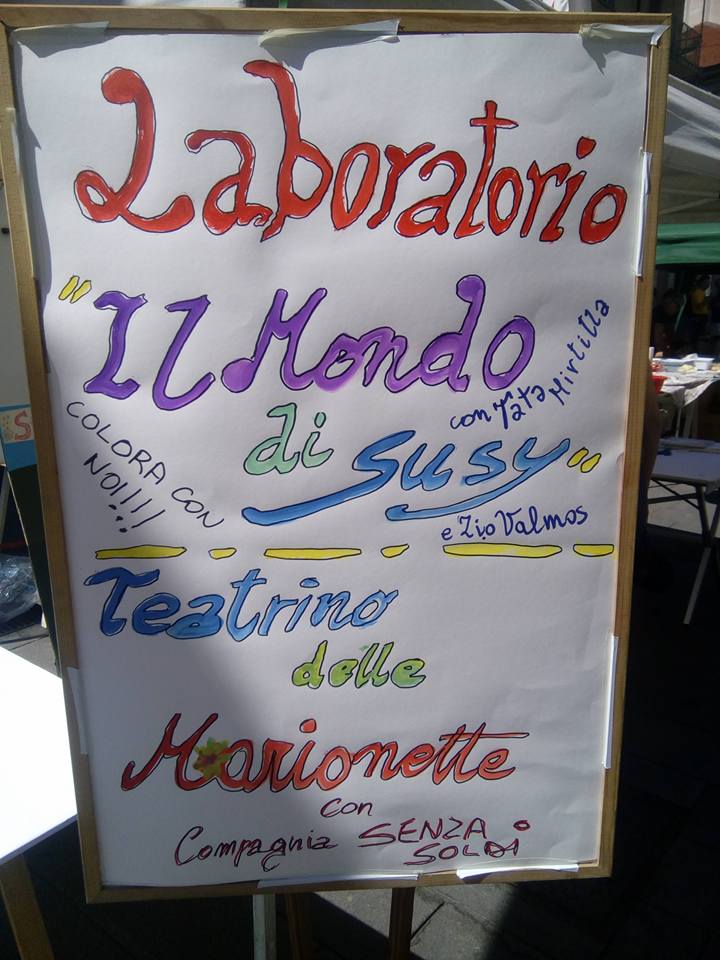 Laboratorio
"Il Mondo
di Susy"
con Tata Mirtilla
e Zio Valmos
COLORA CON
NOI!!!
Teatrino
delle
Marionette
con
Compagnia SENZA
SOLDI